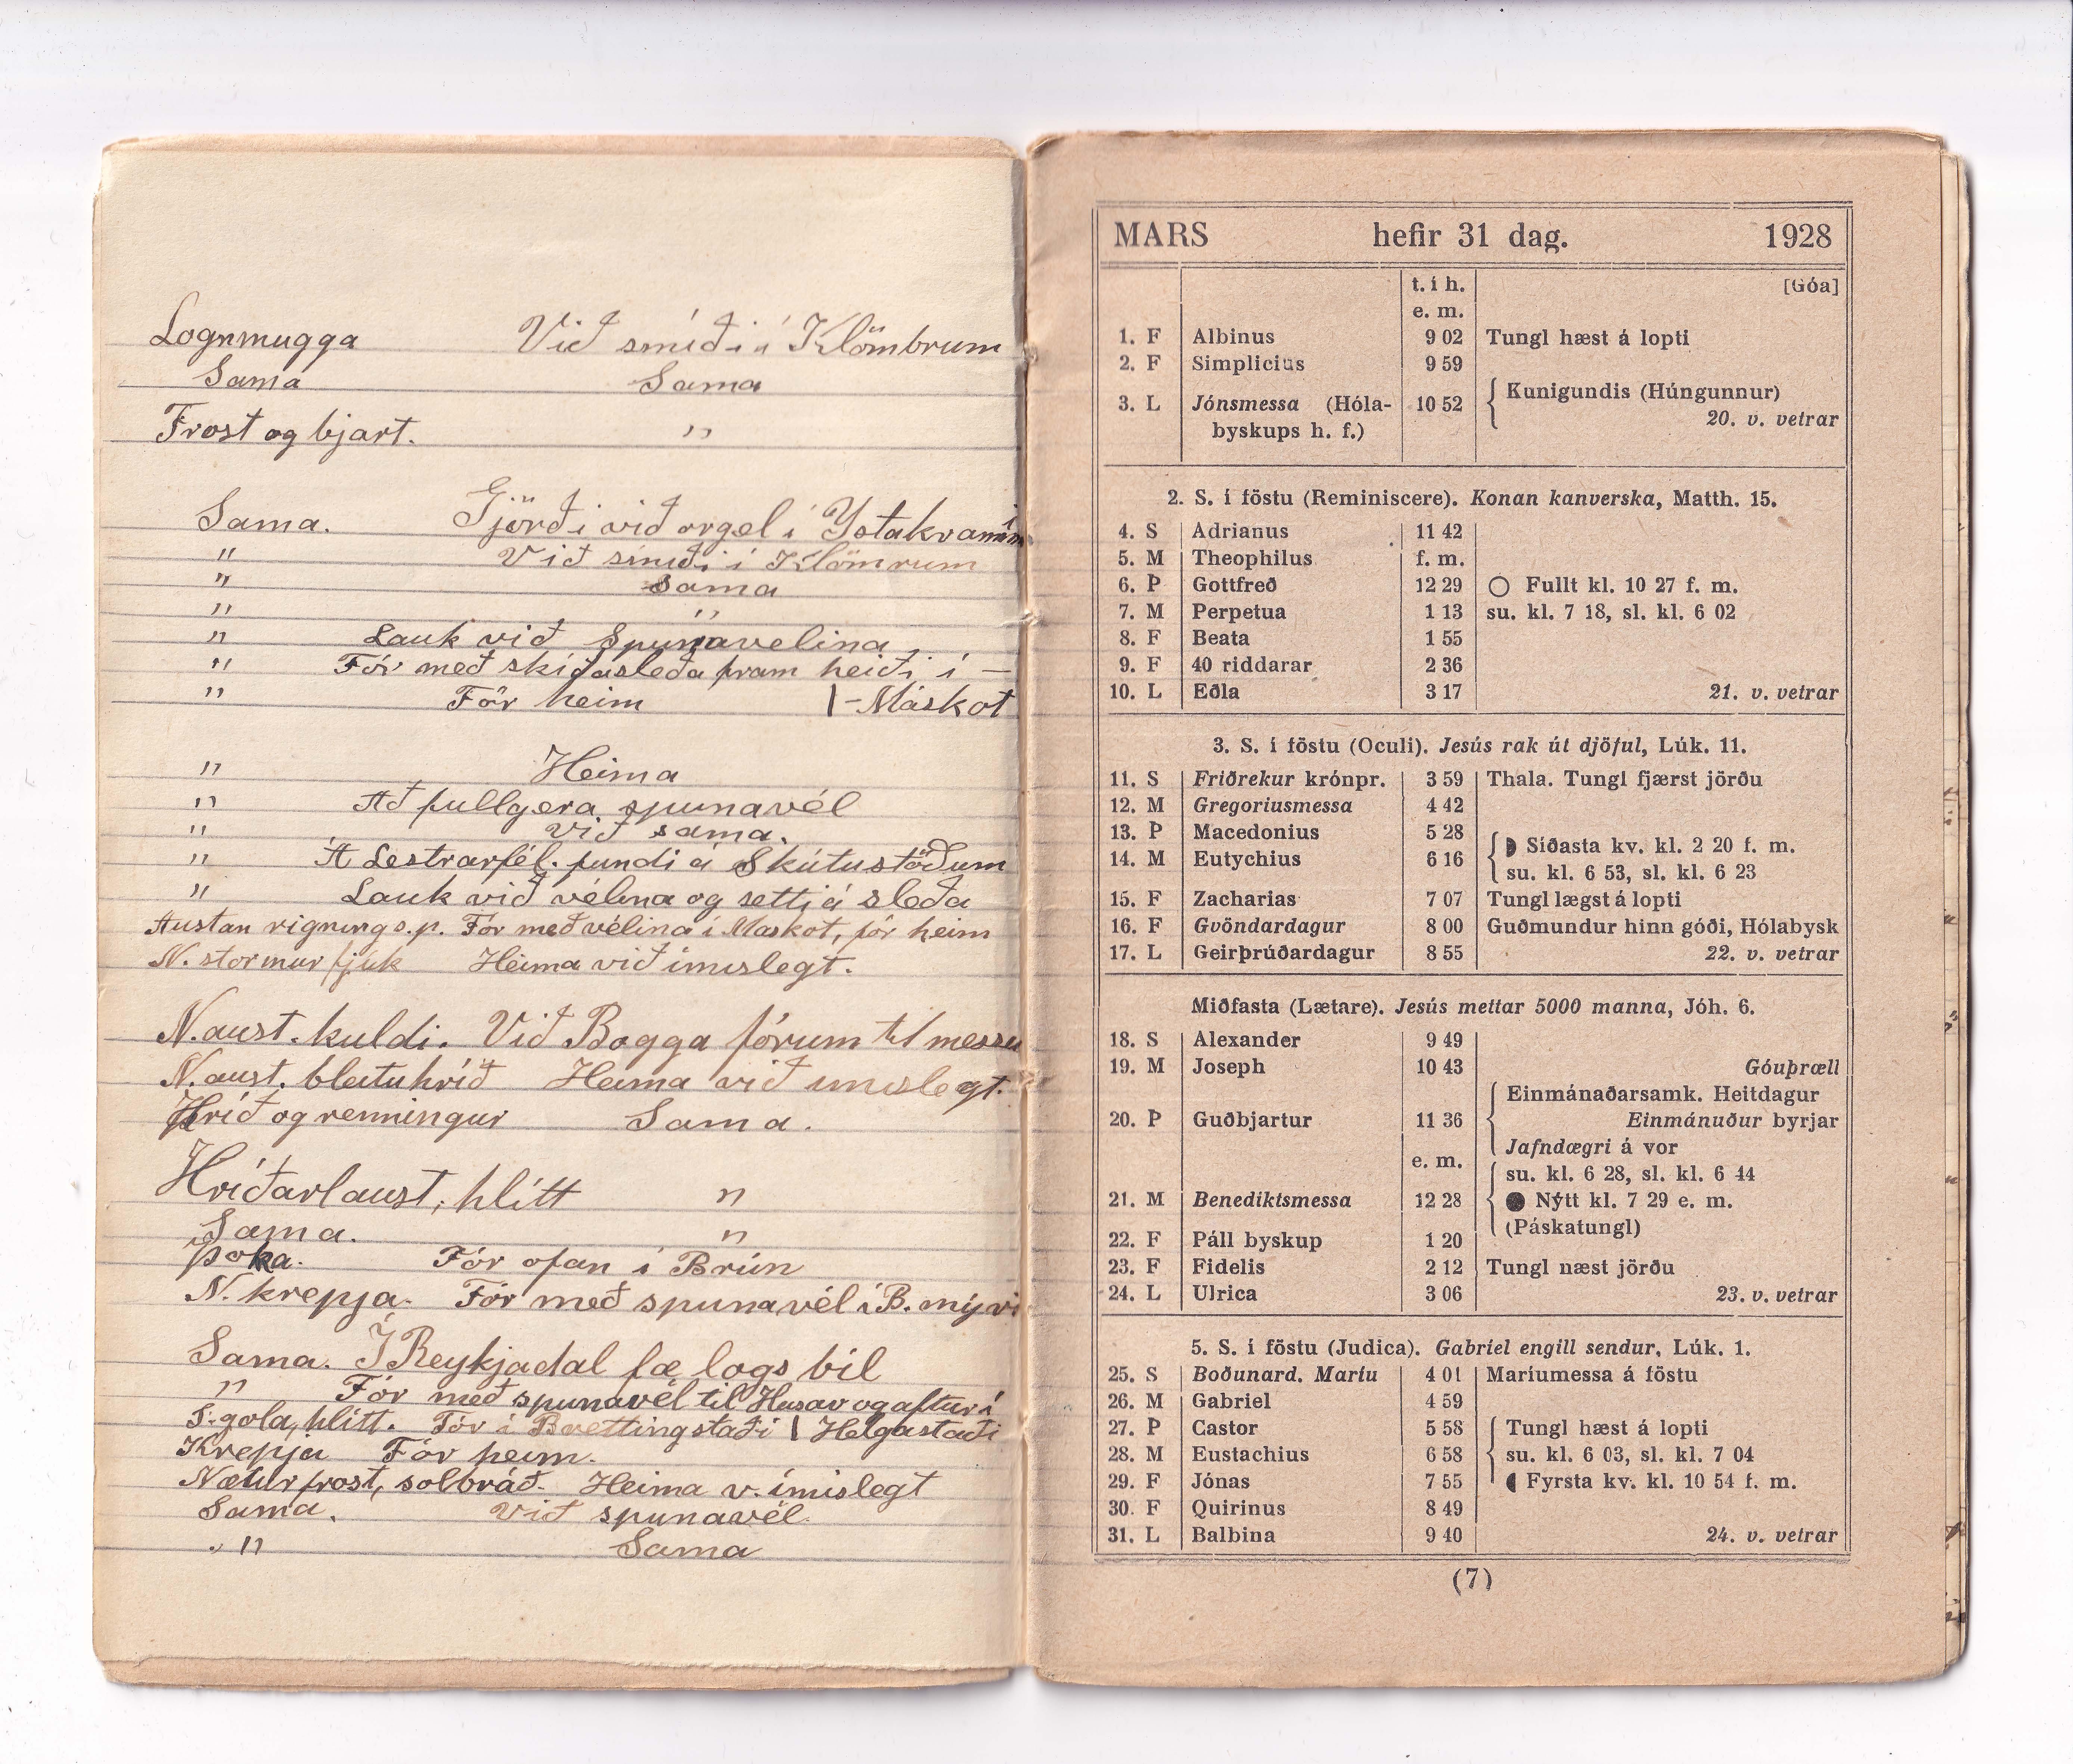 Lognmugga Við smíði í Klömbrum
Sama Sama
Frost og bjart. "
Sama. Gjörði við orgel í Ystahvammi
" Við smíði í Klömrum
" Sama
" "
" Lauk við Spunavelina
" Fór með skíðasleða fram heiði í —
" Fór heim |-Máskot
" Heima
" Að fullgera spunavél
" Við sama.
" Á Lestrarfél. fundi á Skútustöðum
" Lauk við vélina og setti á sleða
Austan rignings.p. Fór með vélina í Maskot, fór heim
N. stormur fjúk Heima við ímislegt.
N.aust. kuldi. Við Bogga fórum til messu
N.aust. bleytuhríð Heima við ímislegt.
Hríð og renningur Sama.
Hríðarlaust, hlítt "
Sama. "
Þoka. Fór ofan í Brún
N. krepja. Fór með spunavél í B. mýri
Sama. Í Reykjadal fæ logs bíl
" Fór með spunavél til Husav og aftur í
S. gola, hlítt. Fór í Brettingstaði | Helgastaði
Krepja Fór heim.
Næturfrost, solbráð. Heima v. ímislegt
Sama. Við spunavél
" Sama
MARS hefir 31 dag. 1928
t. í h. [Góa]
e. m.
1. F Albinus 9 02 Tungl hæst á lopti
2. F Simplicius 9 59
3. L Jónsmessa (Hóla- 10 52 Kunigundis (Húngunnur)
byskups h. f.) 20. v. vetrar
2. S. í föstu (Reminiscere). Konan kanverska, Matth. 15.
4. S Adrianus 11 42
5. M Theophilus f. m.
6. Þ Gottfreð 12 29 ○ Fullt kl. 10 27 f. m.
7. M Perpetua 1 13 su. kl. 7 18, sl. kl. 6 02
8. F Beata 1 55
9. F 40 riddarar 2 36
10. L Eðla 3 17 21. v. vetrar
3. S. í föstu (Oculi). Jesús rak út djöful, Lúk. 11.
11. S Friðrekur krónpr. 3 59 Thala. Tungl fjærst jörðu
12. M Gregoriusmessa 4 42
13. Þ Macedonius 5 28 Síðasta kv. kl. 2 20 f. m.
14. M Eutychius 6 16 su. kl. 6 53, sl. kl. 6 23
15. F Zacharias 7 07 Tungl lægst á lopti
16. F Gvöndardagur 8 00 Guðmundur hinn góði, Hólabysk
17. L Geirþrúðardagur 8 55 22. v. vetrar
Miðfasta (Lætare). Jesús mettar 5000 manna, Jóh. 6.
18. S Alexander 9 49
19. M Joseph 10 43 Góuþræll
Einmánaðarsamk. Heitdagur
20. Þ Guðbjartur 11 36 Einmánuður byrjar
Jafndægri á vor
e. m. su. kl. 6 28, sl. kl. 6 44
21. M Benediktsmessa 12 28 ● Nýtt kl. 7 29 e. m.
(Páskatungl)
22. F Páll byskup 1 20
23. F Fidelis 2 12 Tungl næst jörðu
24. L Ulrica 3 06 23. v. vetrar
5. S. í föstu (Judica). Gabríel engill sendur, Lúk. 1.
25. S Boðunard. Maríu 4 01 Maríumessa á föstu
26. M Gabriel 4 59
27. Þ Castor 5 58 Tungl hæst á lopti
28. M Eustachius 6 58 su. kl. 6 03, sl. kl. 7 04
29. F Jónas 7 55 Fyrsta kv. kl. 10 54 f. m.
30. F Quirinus 8 49
31. L Balbina 9 40 24. v. vetrar
(7)